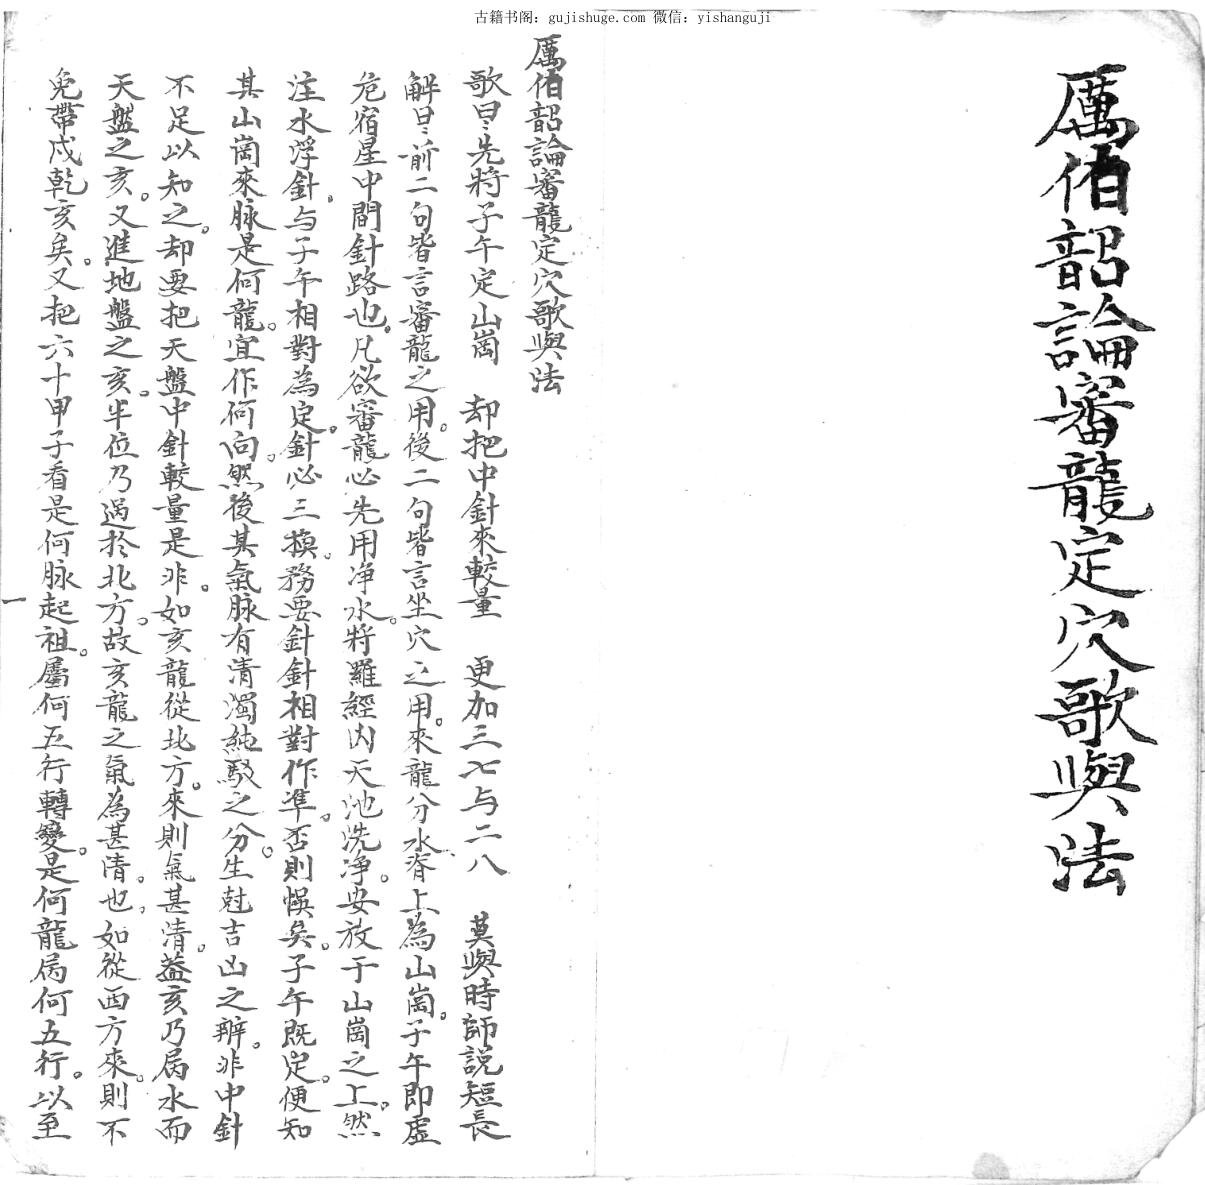 古籍书阁：gujishuge.com 微信：yishanguji
厲伯韶論審龍定穴歌與法
厲伯韶論審龍定穴歌與法
歌曰先將子午定山崗　却把中針來較量　更加三七与二八　莫與時師説短長
解曰前二句皆言審龍之用。後二句皆言坐穴之用。來龍分水脊上為山崗。子午即虛
危宿星中間針路也。凡欲審龍必先用净水。將羅經内天池洗净。安放于山崗之上。然
注水浮針。与子午相對為定。針必三換。務要針針相對作準。否則悞矣。子午既定。便知
其山崗來脉是何龍。宜作何向。然後其氣脉有清濁純駁之分。生尅吉凶之辨。非中針
不足以知之。却要把天盤中針較量是非。如亥龍從北方。來則氣甚清。蓋亥乃属水而
天盤之亥。又進地盤之亥。半位乃過於北方。故亥龍之氣為甚清。也。如從西方來。則不
免帶戌乾亥矣。又把六十甲子看是何脉起祖。屬何五行轉變。是何龍属何五行。以至
一